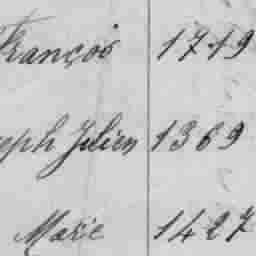 François 1719
eph Julien 1369
Marie 1427